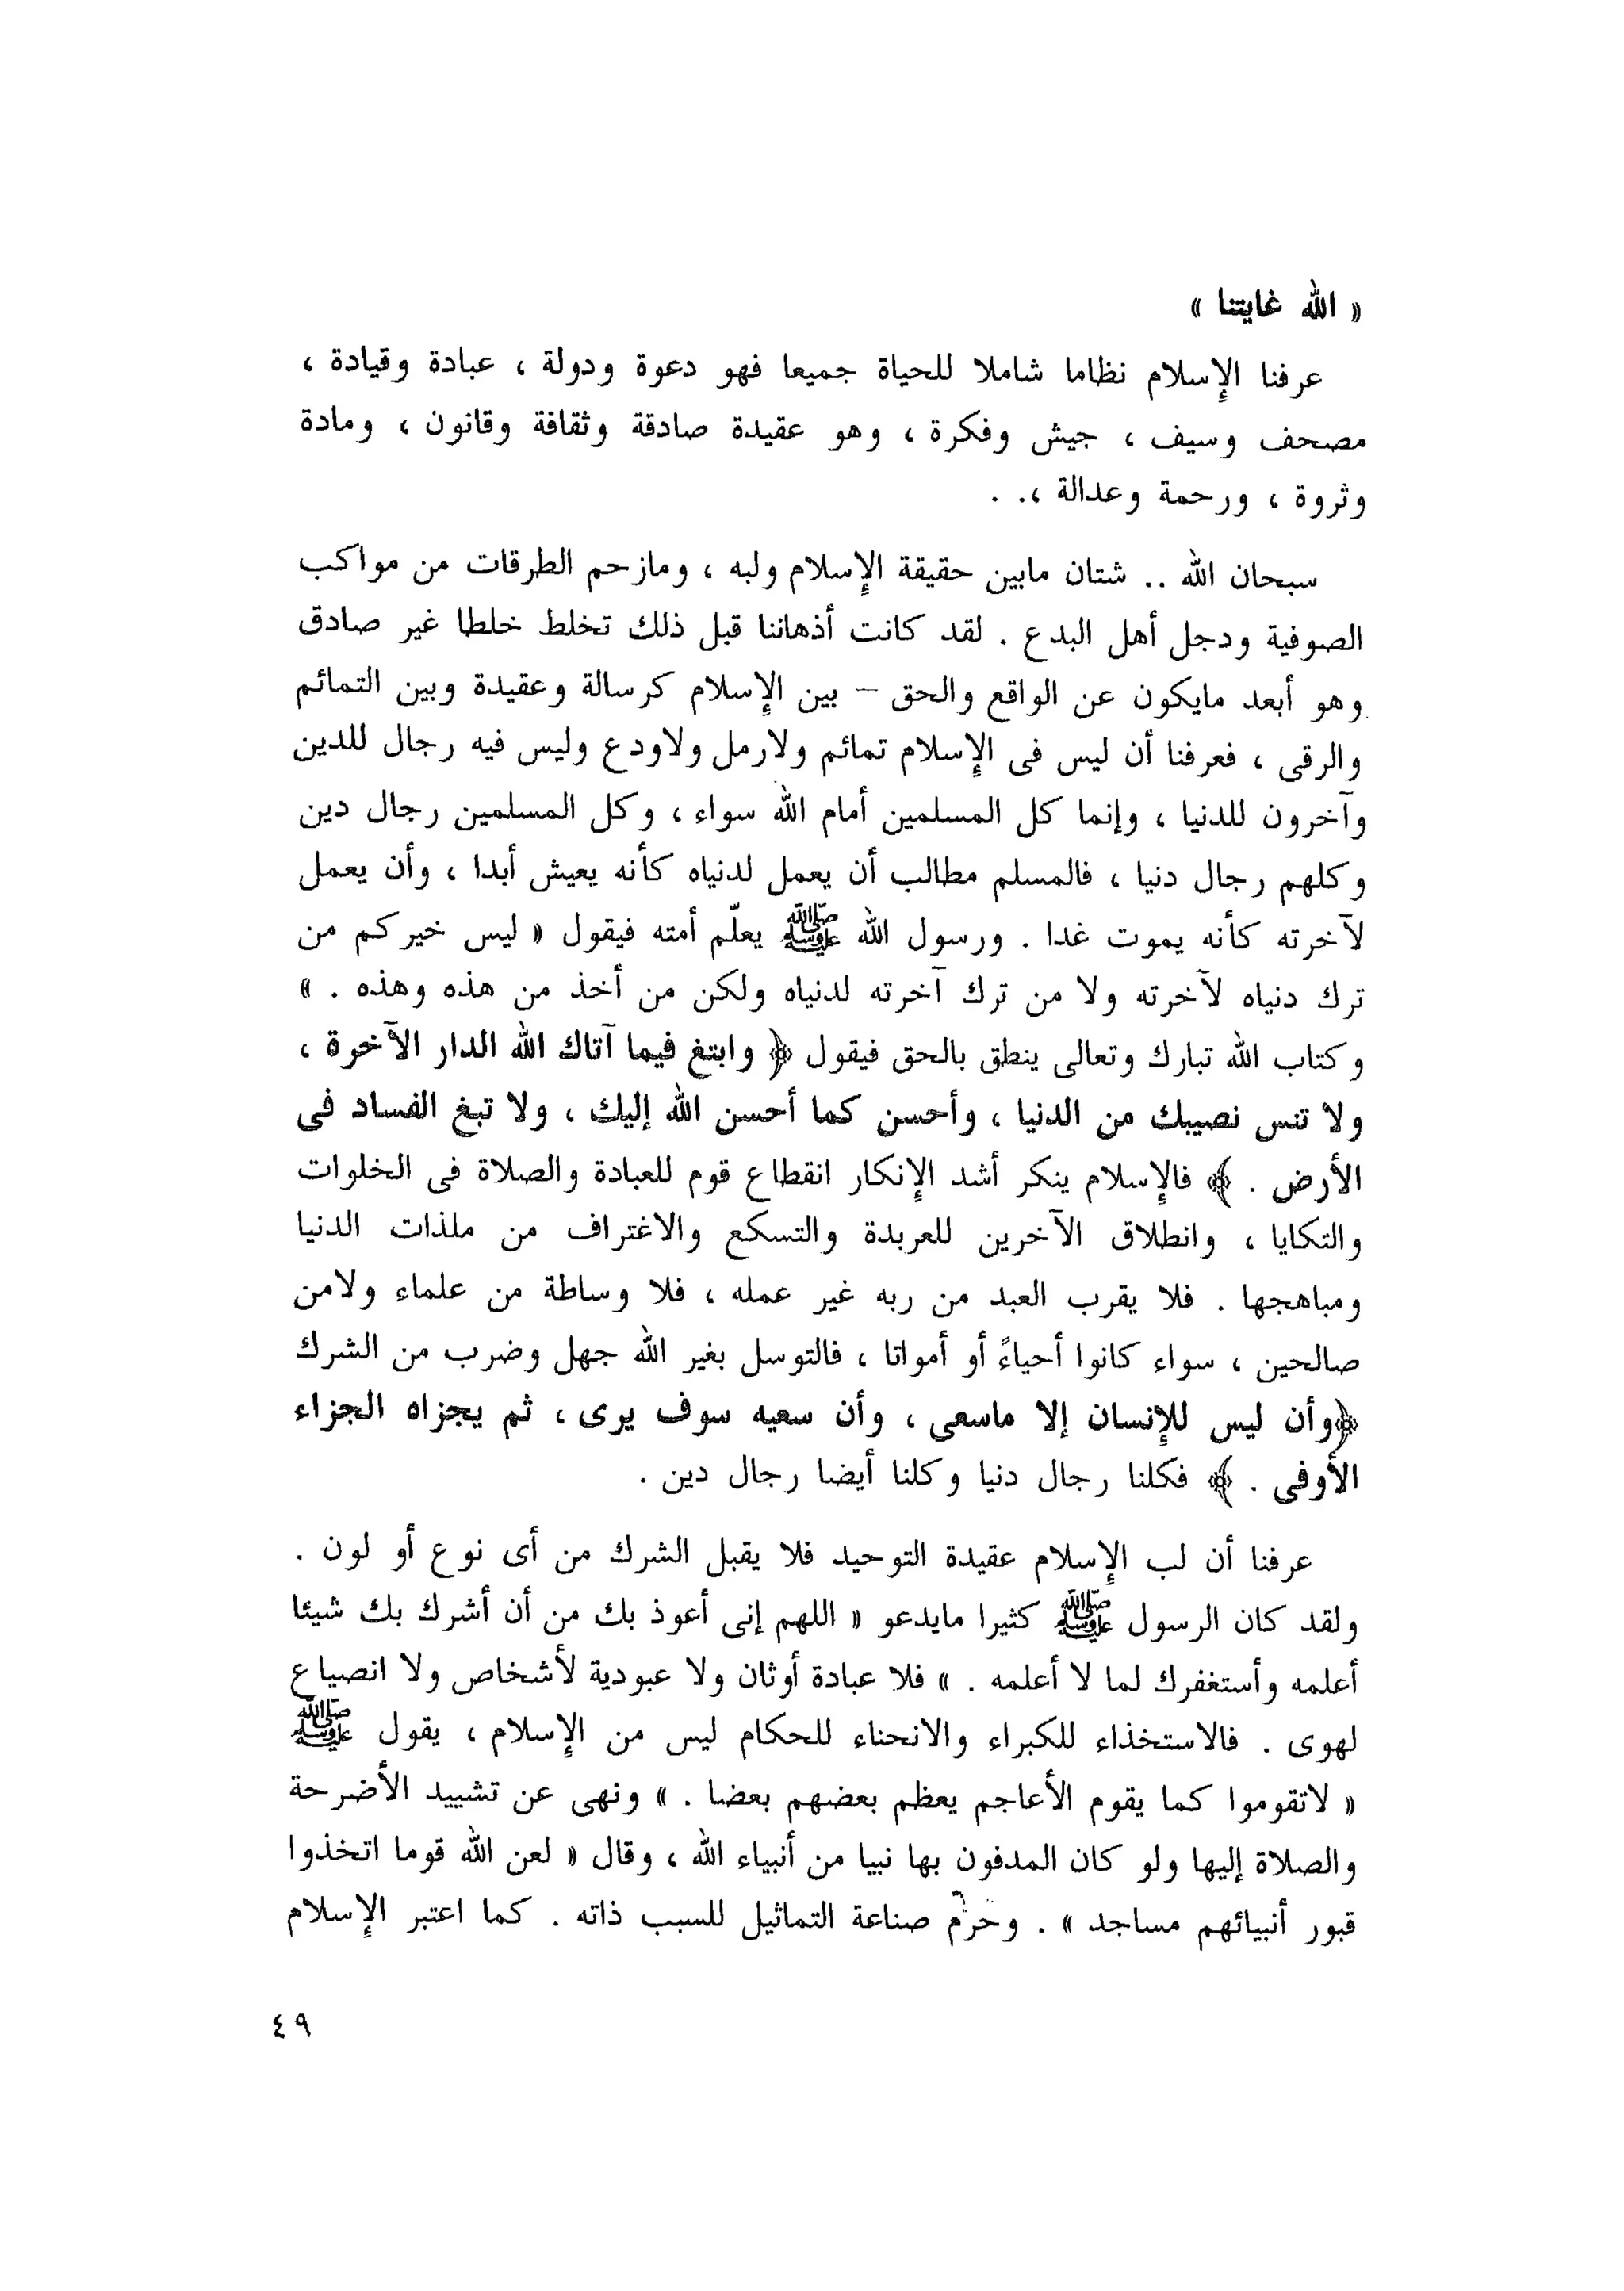 « الله غايتنا »
عرفنا الإسلام نظاما شاملا للحياة جميعا فهو دعوة ودولة ، عبادة وقيادة ،
مصحف وسيف ، جيش وفكرة ، وهو عقيدة صادقة وثقافة وقانون ، ومادة
وثروة ، ورحمة وعدالة ،. .
سبحان الله .. شتان مابين حقيقة الإسلام ولبه ، ومازحم الطرقات من مواكب
الصوفية ودجل أهل البدع . لقد كانت أذهاننا قبل ذلك تخلط خلطا غير صادق
وهو أبعد مايكون عن الواقع والحق – بين الإسلام كرسالة وعقيدة وبين التمائم
والرقى ، فعرفنا أن ليس فى الإسلام تمائم ولارمل ولاودع وليس فيه رجال للدين
وآخرون للدنيا ، وإنما كل المسلمين أمام الله سواء ، وكل المسلمين رجال دين
وكلهم رجال دنيا ، فالمسلم مطالب أن يعمل لدنياه كأنه يعيش أبدا ، وأن يعمل
لآخرته كأنه يموت غدا . ورسول الله ﷺ يعلّم أمته فيقول « ليس خيركم من
ترك دنياه لآخرته ولا من ترك آخرته لدنياه ولكن من أخذ من هذه وهذه . »
وكتاب الله تبارك وتعالى ينطق بالحق فيقول ﴿ وابتغ فيما آتاك الله الدار الآخرة ،
ولا تنس نصيبك من الدنيا ، وأحسن كما أحسن الله إليك ، ولا تبغ الفساد فى
الأرض . ﴾ فالإسلام ينكر أشد الإنكار انقطاع قوم للعبادة والصلاة فى الخلوات
والتكايا ، وانطلاق الآخرين للعربدة والتسكع والاغتراف من ملذات الدنيا
ومباهجها . فلا يقرب العبد من ربه غير عمله ، فلا وساطة من علماء ولامن
صالحين ، سواء كانوا أحياءً أو أمواتا ، فالتوسل بغير الله جهل وضرب من الشرك
﴿وأن ليس للإنسان إلا ماسعى ، وأن سعيه سوف يرى ، ثم يجزاه الجزاء
الأوفى . ﴾ فكلنا رجال دنيا وكلنا أيضا رجال دين .
عرفنا أن لب الإسلام عقيدة التوحيد فلا يقبل الشرك من أى نوع أو لون .
ولقد كان الرسول ﷺ كثيرا مايدعو « اللهم إنى أعوذ بك من أن أشرك بك شيئا
أعلمه وأستغفرك لما لا أعلمه . » فلا عبادة أوثان ولا عبودية لأشخاص ولا انصياع
لهوى . فالاستخذاء للكبراء والانحناء للحكام ليس من الإسلام ، يقول ﷺ
« لاتقوموا كما يقوم الأعاجم يعظم بعضهم بعضا . » ونهى عن تشييد الأضرحة
والصلاة إليها ولو كان المدفون بها نبيا من أنبياء الله ، وقال « لعن الله قوما اتخذوا
قبور أنبيائهم مساجد » . وحرّم صناعة التماثيل للسبب ذاته . كما اعتبر الإسلام
٤٩